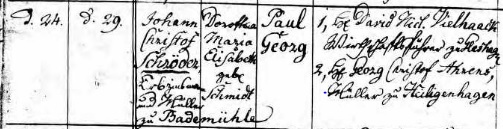 d. 24.
d. 29.
Johann
Christof
Schröder
Erbzins
u. Müller
zu Bademühle
Dorothea
Maria
Elisabeth
gebe
Schmidt
Paul
Georg
1, H. David Nic. Vielhaak
Wirthschaftsführer zu
2, H. Georg Christof Ahrens,
Müller zu Heiligenhagen